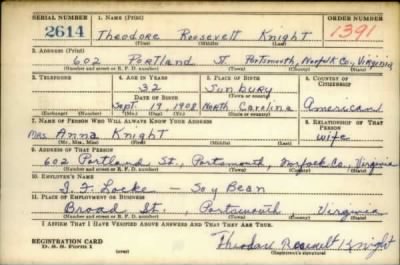 SERIAL NUMBER 1. NAME (Print) ORDER NUMBER
2614 Theodore Roosevelt Knight 1391
(First) (Middle) (Last)
2. ADDRESS (Print)
602 Portland St. Portsmouth, Norfolk Co, Virginia
(Number and street or R. F. D. number) (Town) (County) (State)
3. TELEPHONE 4. AGE IN YEARS 5. PLACE OF BIRTH 6. COUNTRY OF CITIZENSHIP
32 Sunbury
DATE OF BIRTH (Town or county)
Sept. 19, 1908 North Carolina American
(Exchange) (Number) (Mo.) (Day) (Yr.) (State or country)
7. NAME OF PERSON WHO WILL ALWAYS KNOW YOUR ADDRESS 8. RELATIONSHIP OF THAT PERSON
Mrs. Anna Knight wife
(Mr., Mrs., Miss) (First) (Middle) (Last)
9. ADDRESS OF THAT PERSON
602 Portland St., Portsmouth, Norfolk Co., Virginia
(Number and street or R. F. D. number) (Town) (County) (State)
10. EMPLOYER'S NAME
I. F. Locke — Soy Bean
11. PLACE OF EMPLOYMENT OR BUSINESS
Broad St., Portsmouth Virginia
(Number and street or R. F. D. number) (Town) (County) (State)
I AFFIRM THAT I HAVE VERIFIED ABOVE ANSWERS AND THAT THEY ARE TRUE.
REGISTRATION CARD
D. S. S. Form 1 Theodore Roosevelt Knight
(Registrant's signature)